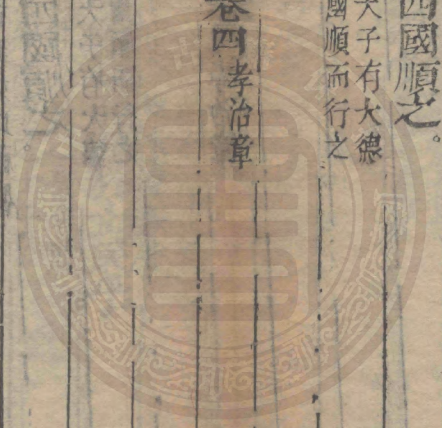 四國順之。
天子有大德
國順而行之
卷四孝治章